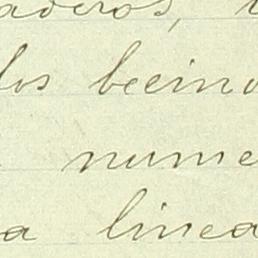 aderos,
los becino
nume
a linea